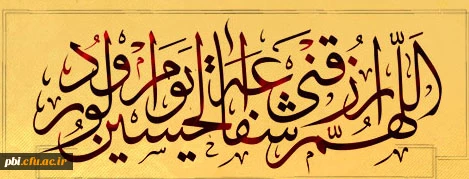 اللهم ارزقنی شفاعة الحسین یوم الورود
pbi.cfu.ac.ir